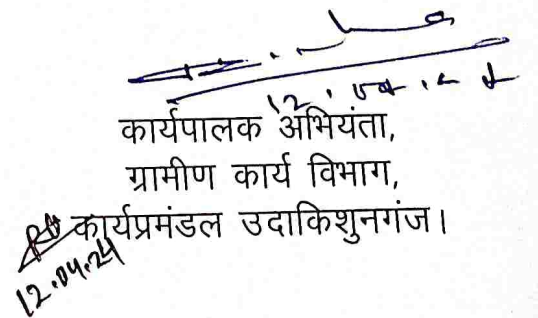 कार्यपालक अभियंता,
ग्रामीण कार्य विभाग,
कार्यप्रमंडल उदाकिशुनगंज।
12.04.24